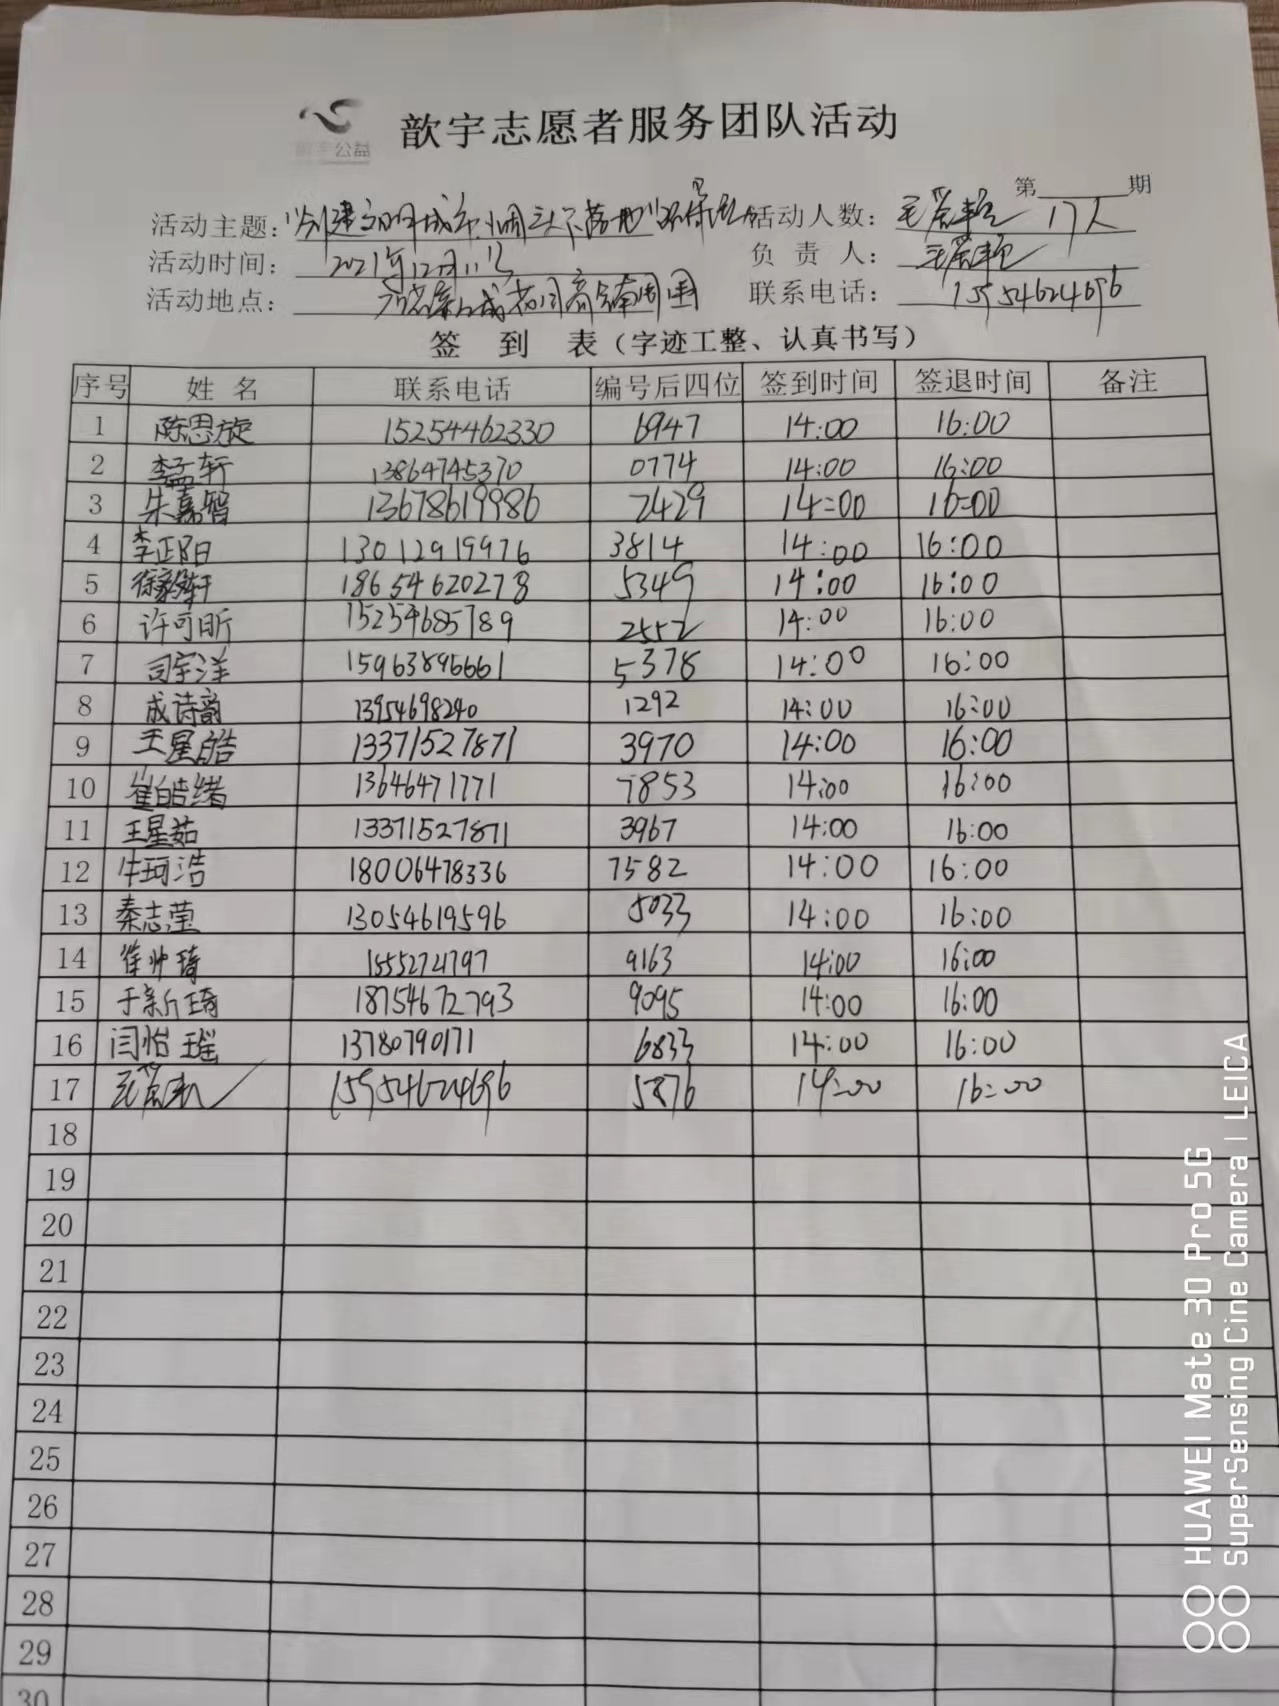 公益
歆宇志愿者服务团队活动
第 期
活动主题：“创建文明城市，烟头不落地”环保 活动人数： 17人
活动时间：2021年12月11号 负责人：
活动地点： 联系电话：15954624696
签到表（字迹工整、认真书写）
序号 姓名 联系电话 编号后四位 签到时间 签退时间 备注
1 陈思旋 15254462330 6947 14:00 16:00
2 李孟轩 13864745370 0774 14:00 16:00
3 朱嘉智 13678619986 2429 14:00 16:00
4 李正阳 13012919976 3814 14:00 16:00
5 徐毅轩 18654620278 5349 14:00 16:00
6 许可昕 15254685789 2552 14:00 16:00
7 司宇洋 15963896661 5378 14:00 16:00
8 成诗韵 13954698240 1292 14:00 16:00
9 王星皓 13371527871 3970 14:00 16:00
10 崔皓绪 13646471771 7853 14:00 16:00
11 王星茹 13371527871 3967 14:00 16:00
12 牛珂浩 18006478336 7582 14:00 16:00
13 秦志莹 13054619596 5033 14:00 16:00
14 徐帅琦 15552721797 9163 14:00 16:00
15 于新琦 18754672793 9095 14:00 16:00
16 闫怡瑶 13780790171 6833 14:00 16:00
17 15954624696 5876 14:00 16:00
18
19
20
21
22
23
24
25
26
27
28
29
30
HUAWEI Mate 30 Pro 5G
SuperSensing Cine Camera | LEICA